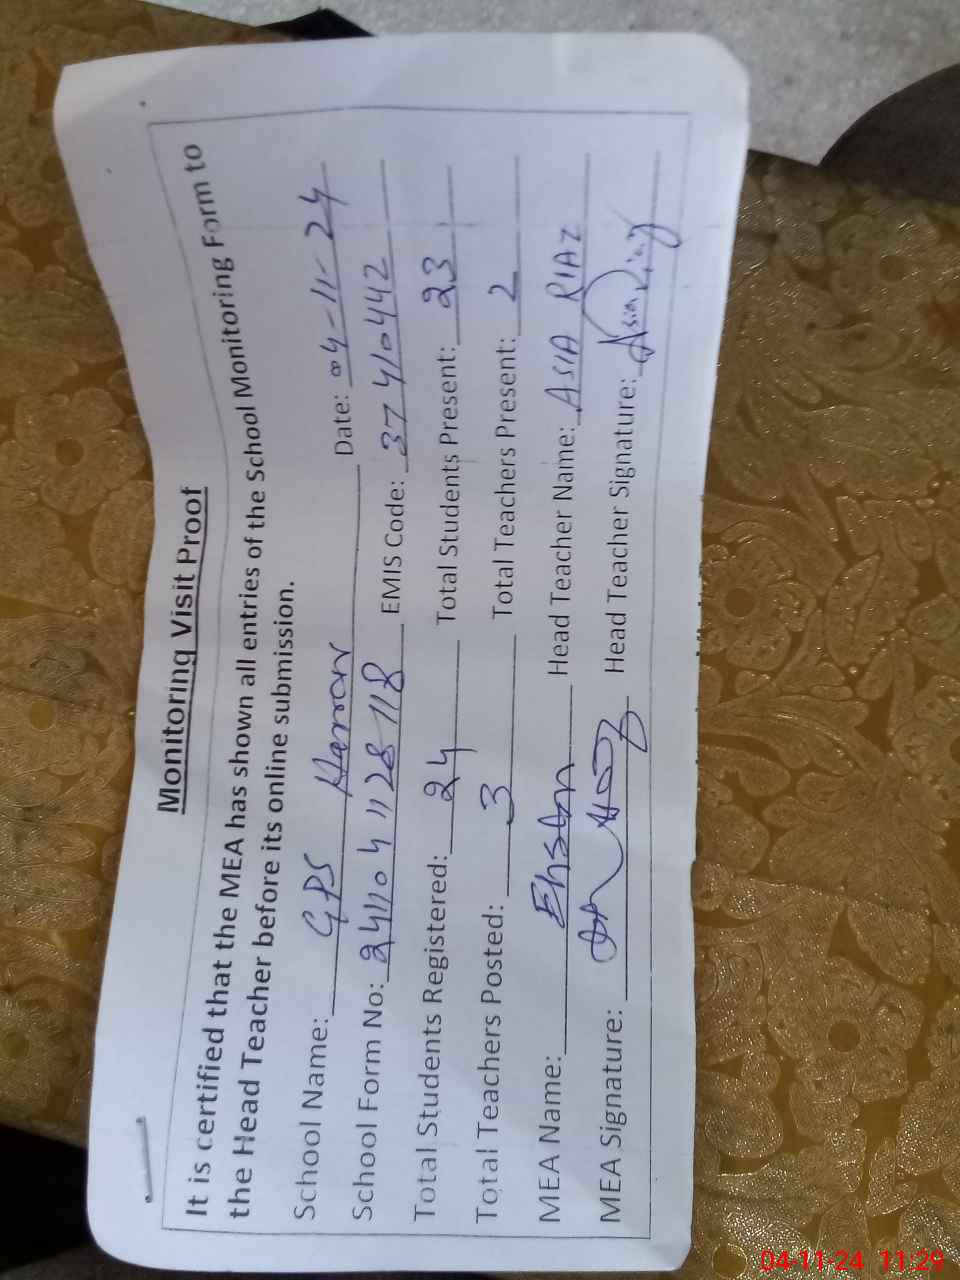 Monitoring Visit Proof
It is certified that the MEA has shown all entries of the School Monitoring Form to
the Head Teacher before its online submission.
School Name: GPS Date: 04-11-24
School Form No: 241104 1128 118 EMIS Code: 37410442
Total Students Registered: 24 Total Students Present: 23
Total Teachers Posted: 3 Total Teachers Present: 2
MEA Name: Ehsan Head Teacher Name: ASIA RIAZ
MEA Signature: Head Teacher Signature: Asia Riaz
04-11-24 11:29